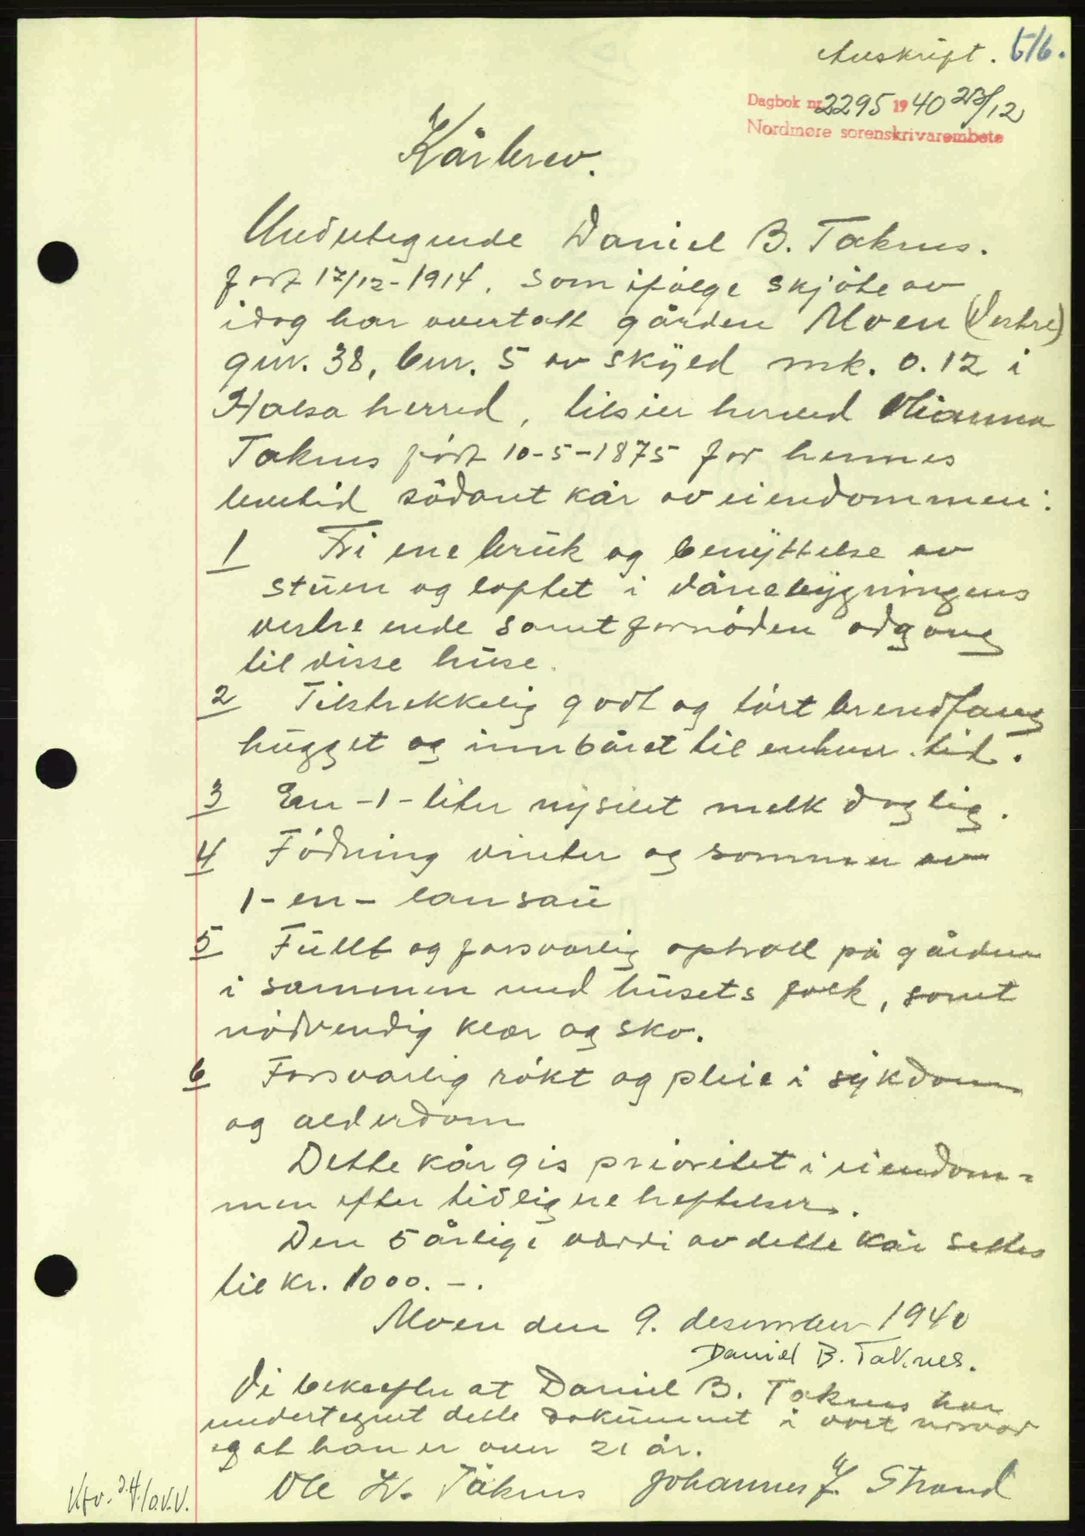 Avskrift. 516.
Dagbok nr. 2295 1940 23/12
Nordmøre sorenskrivarembete
Kårbrev.
Undertegnede Daniel B. Taknes.
født 17/12-1914. som ifølge skjöte av
idag har overtatt gården Moen (Vestre)
gnr. 38, bnr. 5 av skyld mk. 0.12 i
Halsa herred, tilsier herved
Taknes født 10-5-1875 for hennes
levetid sådant kår av eiendommen:
1 Fri ene bruk og benyttelse av
stuen og loftet i vånebygningens
vestre ende samt fornöden adgang
til disse huse.
2 Tilstrekkelig godt og tört brendfang
hugget og innbåret til enhver tid.
3 En -1- liter nysilet melk daglig.
4 Födning vinter og sommer av
1-en- lausau
5 Fullt og forsvarlig ophold på gården
i sammen med husets folk, samt
nödvendig klær og sko.
6 Forsvarlig rökt og pleie i sykdom
og alderdom
Dette kår gis prioritet i eiendom-
men efter tidligere heftelser.
Den 5 årlige værdi av dette kår settes
til kr. 1000.-.
Moen den 9. desember 1940
Daniel B. Taknes.
Vi bekrefter at Daniel B. Taknes har
undertegnet dette dokument i vort nærvær
og at han er over 21 år.
Ole Taknes Johannes J. Strand